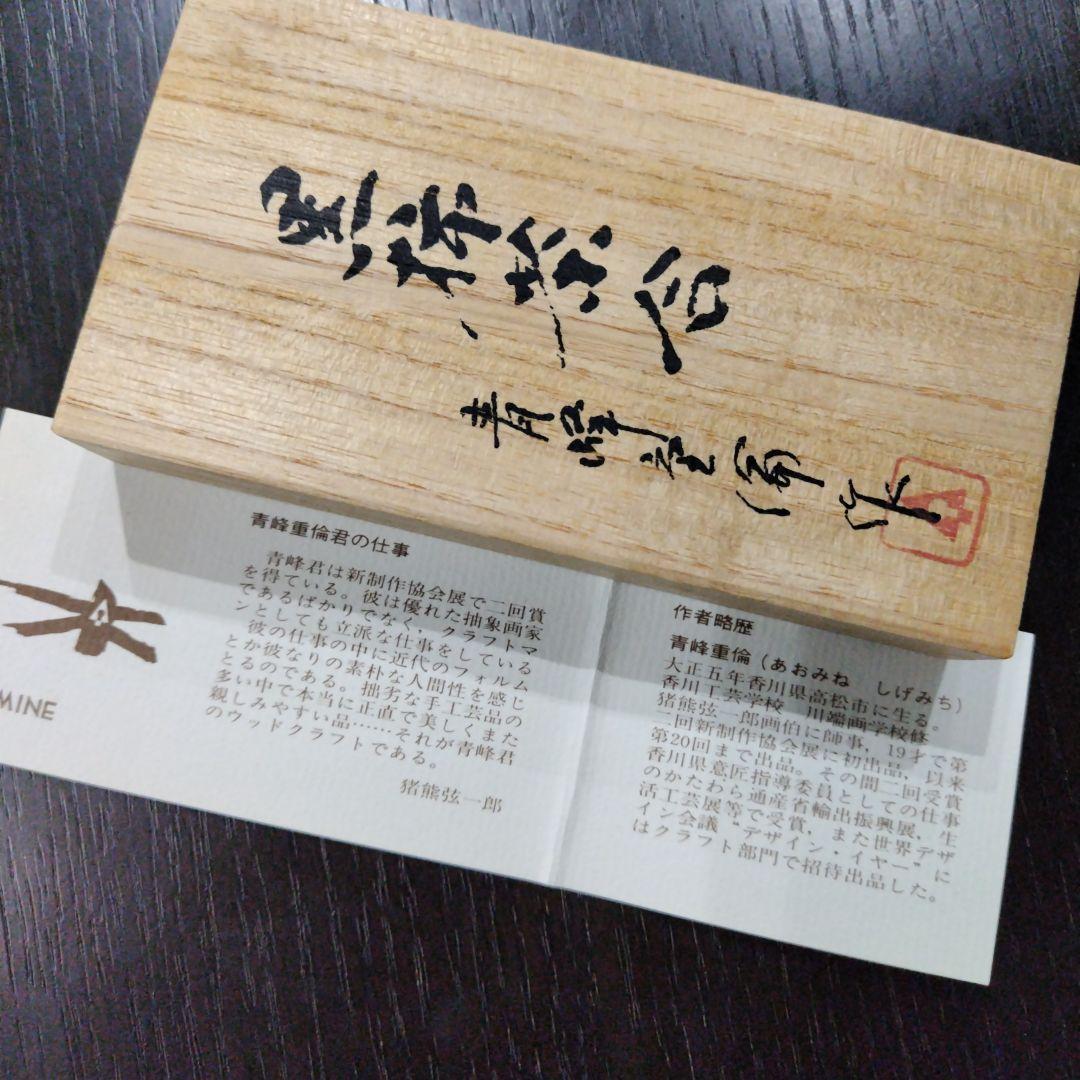 黒柿茶合
青峰重倫作
MINE
青峰重倫君の仕事
青峰君は新制作協会展で二回賞
を得ている。彼は優れた抽象画家
であるばかりでなく、クラフトマ
ンとしても立派な仕事をしている
彼の仕事の中に近代のフォルム
とか彼なりの素朴な人間性を感じ
とるのである。拙劣な手工芸品の
多い中で本当に正直で美しくまた
親しみやすい品……それが青峰君
のウッドクラフトである。
猪熊弦一郎
作者略歴
青峰重倫(あおみね しげみち)
大正五年香川県高松市に生る。
香川工芸学校、川端画学校修
猪熊弦一郎画伯に師事，19才で第
二回新制作協会展に初出品，以来
第20回まで出品。その間二回受賞
香川県意匠指導委員としての仕事
のかたわら通産省輸出振興展，生
活工芸展等で受賞，また世界デザ
イン会議“デザイン・イヤー”に
はクラフト部門で招待出品した。